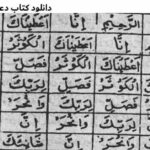 دانلود کتاب دع
الرَّحِيمِ اِنَّا اَعْطَيْنَاكَ
اِنَّا اَعْطَيْنَاكَ الْكَوْثَرَ
اَعْطَيْنَاكَ الْكَوْثَرَ فَصَلِّ
الْكَوْثَرَ فَصَلِّ لِرَبِّكَ
فَصَلِّ لِرَبِّكَ وَانْحَرْ
لِرَبِّكَ وَانْحَرْ اِنَّ
وَانْحَرْ اِنَّ شَانِئَكَ